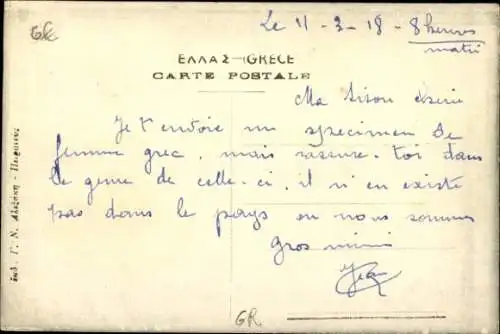 GR
Le 11-3-18 - 8 heures
matin
ΕΛΛΑΣ-GRECE
CARTE POSTALE
Ma Lison chérie
Je t'envoie un specimen de
femme grec, mais rassure-toi dans
le genre de celle-ci, il n'en existe
pas dans le pays ou nous sommes
Gros mimi
Jean
Εκδ. Γ. Ν. Αλεξάκη - Πειραιεύς
GR.